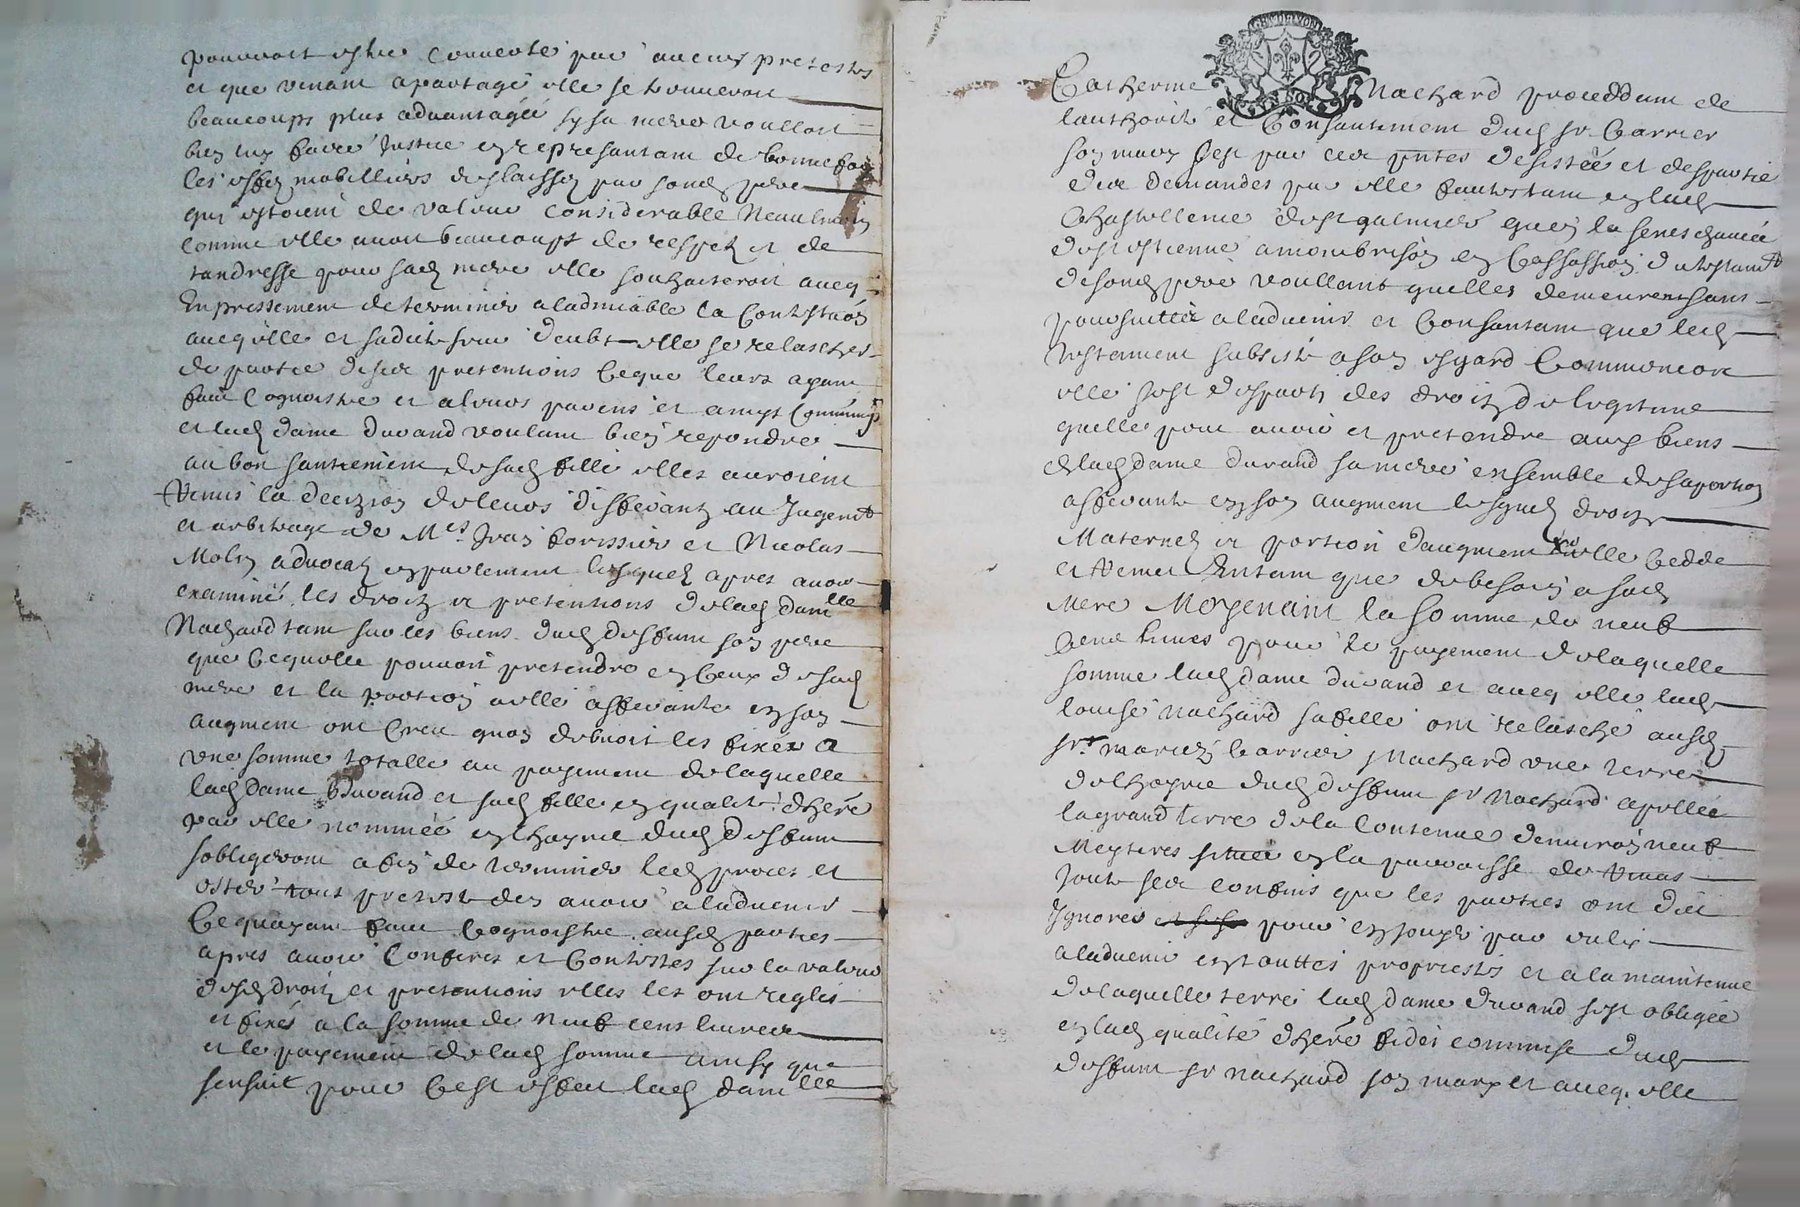 pouvoit estre couverte par aucuns pretextes
et que venant a partage elle se trouveroit
beaucoups plus advantagée sy sa mere voulloit
bien luy faire justice en representant de bonne foy
les effes mobilliers delaissez par sond pere
qui estoient de valeur considerable neaulmoin
comme elle avoit beaucoups de respet et de
tandresse pour sad mere elle souhaiteroit avecq
empressement de terminer a ladmiable la contstaõn
avecq elle et sadite seur deubt elle se relascher
de partie de ses pretentions ceque leurs ayant
faict cognoistre et a leurs parens et amys communs
et lad dame durand voulant bien repondre
au bon santiement de sad fille elles auroient
remis la decizion de leurs differants au jugemt
et arbitrage de Mes Jean forissier et Nicolas
Molin advocatz en parlement lesquels apres avoir
examiné les droitz et pretentions de lad damlle
Nachard tant sur les biens dud deffunt son pere
que cequelle pouvoit pretendre en ceux de sad
mere et la portion a elle afferante en son
augment ont creu quon debvoit les fixer a
une somme totalle au payement de laquelle
lad dame Durand et sad fille en qualité dhere
par elle nommée en lhoyrie dud deffunt
sobligeront afin de terminer led proces et
oster tout pretexte den avoir a ladvenir
ce quayant faict cognoistre ausd parties
apres avoir conferes et contestes sur la valeur
desd droitz et pretentions elles les ont reglés
et fixés a la somme de neuf cens livres
et le payement de lad somme ainsy que
sensuit pour cest effect lad damlle
Catherine Nachard proceddant de
lauthorité et consantement dud sr Carrier
son mary sest par ces pntes desistée et despartie
des demandes par elle faictes tant en lad
Chastellenie de st galmier quen la seneschaucée
de st estienne a monbrison en cassassion du testamt
de sond pere voullant quelles demeurent sans
poursuitte a ladvenir et consantant que led
testament subsiste a son esgard comme encore
elle sest desparti des droitz de legitime
quelle peut avoir et pretendre aux biens
de lad dame durand sa mere ensemble de sa portion
afferante en son augment lesquels droitz
Maternels et portion daugment elle cedde
et remet entant que de besoin a sad
Mere Moyenant la somme de neuf
cens livres pour le payement de laquelle
somme lad dame durand et avecq elle lad
louise nachard sa fille ont relasché ausd
srs mariez carrier Nachard une terre
de lhoyrie dud deffunt sr Nachard apellée
la grand terre de la contenue denviron neuf
Meyteres situee en la parroisse de
joute ses confins que les parties ont dit
Ignorer pour en jouyr par eulx
a ladvenir en touttes proprietés et a la maintenue
de laquelle terre lad dame durand sest obligée
en lad qualité dhere fidei commise dud
deffunt sr nachard son mary et avecq elle